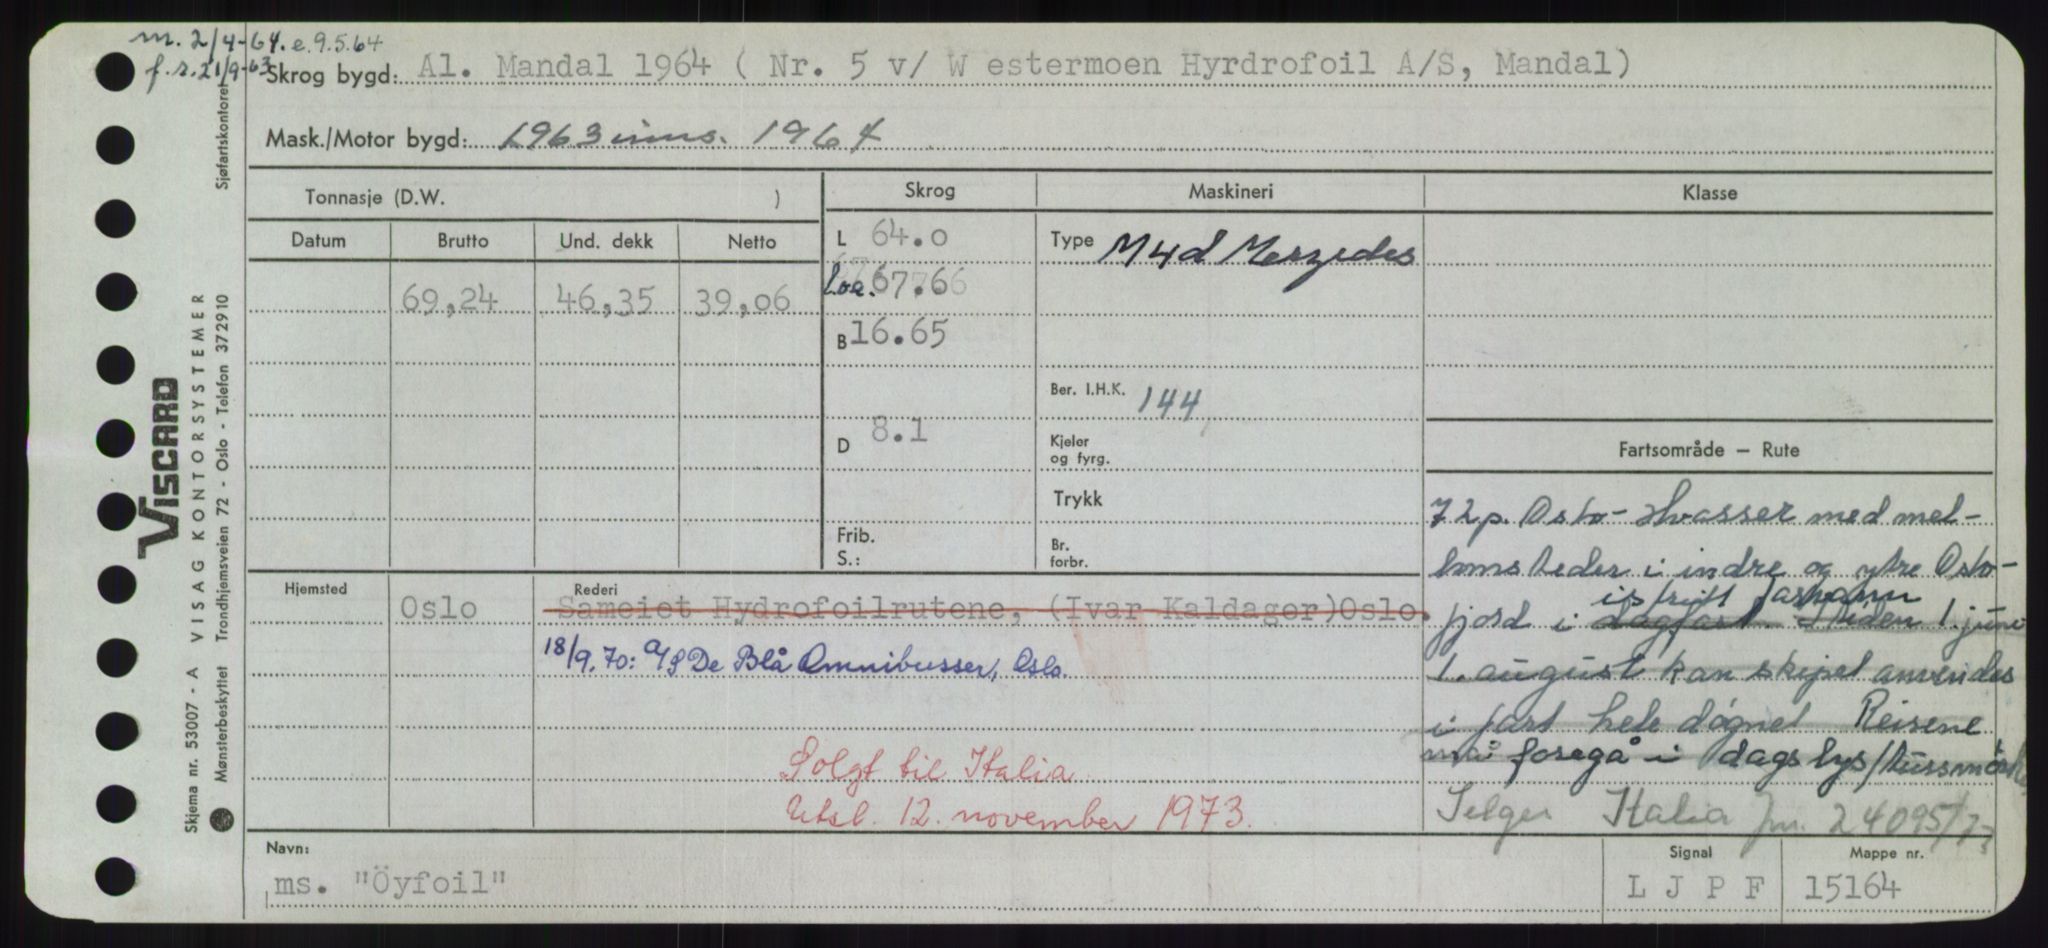 m. 2/4-64. e. 9.5.64
f.r. 21/9-63
Skrog bygd: Al. Mandal 1964 ( Nr. 5 v/ W estermoen Hyrdrofoil A/S, Mandal)
Mask./Motor bygd: 1963 inns. 1964
Tonnasje (D.W. )
Skrog
Maskineri
Klasse
Datum
Brutto
Und. dekk
Netto
69,24
46,35
39,06
L 64.0
Loa. 67.66
B 16.65
D 8.1
Frib.
S.:
Type M4d Merzedes
Ber. I.H.K. 144
Kjeler
og fyrg.
Trykk
Br.
forbr.
Fartsområde – Rute
72p. Oslo- Hvasser med mel-
lomsteder i indre og ytre Oslo-
isfritt farvann
fjord i dagfart. I tiden 1. juni
1. august kan skipet anvendes
i fart hele døgnet Reisene
må foregå i dagslys/tussmørke
Selges Italia jnr. 24095/73
Hjemsted
Oslo
Rederi
Sameiet Hydrofoilrutene, (Ivar Kaldager)Oslo.
18/9.70: A/S De Blå Omnibusser, Oslo.
Solgt til Italia
Utsl. 12. november 1973.
Navn:
ms. "Öyfoil"
Signal
L J P F
Mappe nr.
15164
VISCARD
Skjema nr. 53007 - A VISAG KONTORSYSTEMER
Mønsterbeskyttet Trondhjemsveien 72 - Oslo - Telefon 372910 Sjøfartskontoret